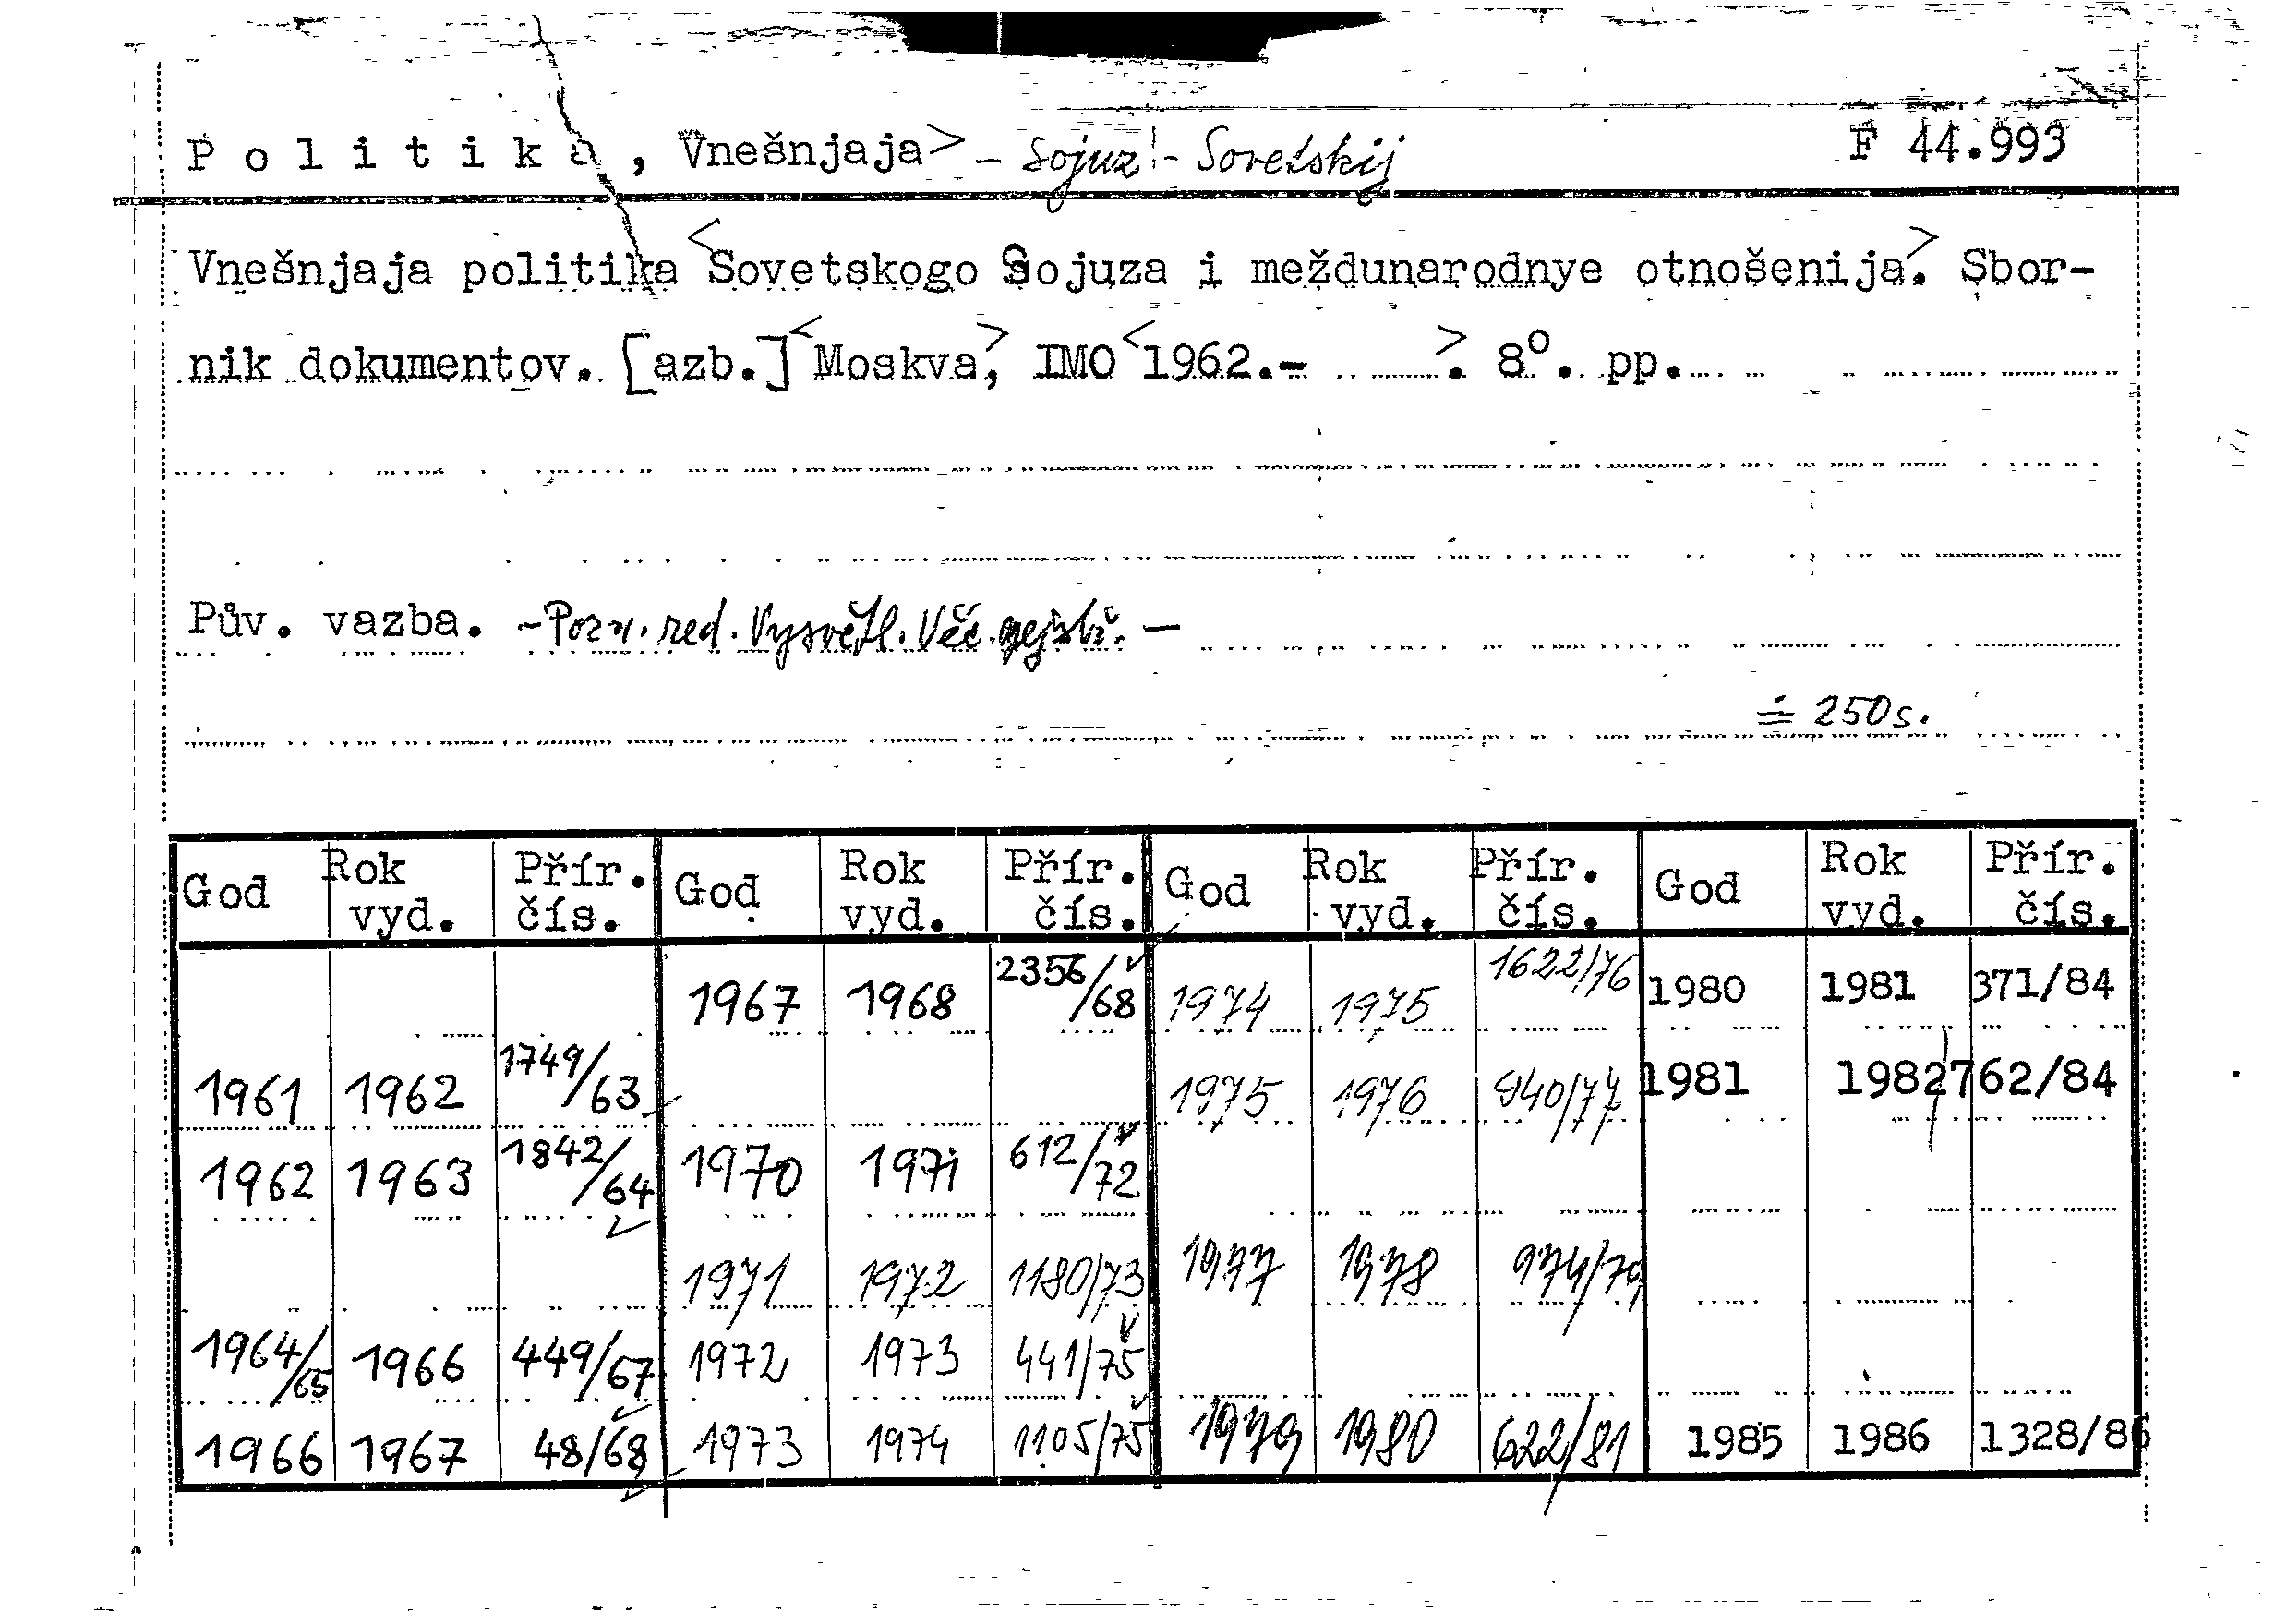 Politika, Vnešnjaja> - Sojuz - Sovetskij F 44.993
Vnešnjaja politika <Sovetskogo Sojuza i meždunarodnye otnošenija>. Sbor-
nik dokumentov. [azb.] <Moskva>, IMO <1962.- >. 8°. pp.
Pův. vazba. - Pozn. red. Vysvětl. Věc. rejstř. -
≐ 250 s.
God Rok vyd. Přír. čís. God Rok vyd. Přír. čís. God Rok vyd. Přír. čís. God Rok vyd. Přír. čís.
1967 1968 2356/68 1974 1975 1622/76 1980 1981 371/84
1961 1962 1749/63 1975 1976 940/77 1981 1982 762/84
1962 1963 1842/64 1970 1971 612/72
1971 1972 1180/73 1977 1978 974/79
1964/65 1966 449/67 1972 1973 441/75
1966 1967 48/68 1973 1974 1105/75 1979 1980 622/81 1985 1986 1328/86